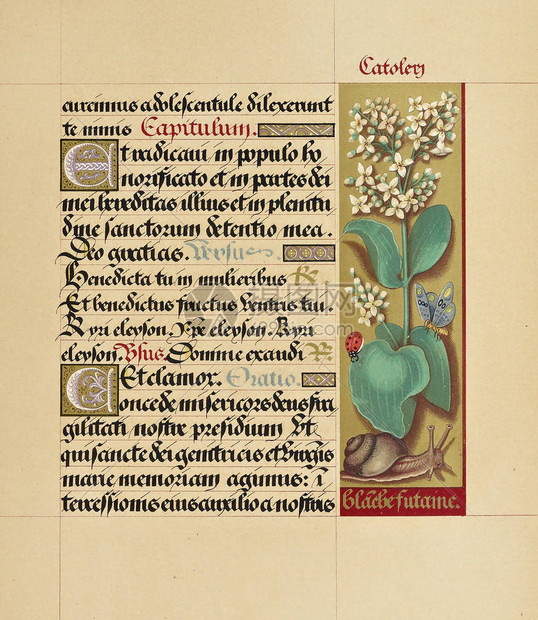 Catolery
curremus adolescentule dilexerunt
te nimis Capitulum.
Et radicavi in populo ho
norificato et in partes dei
mei hereditas illius et in plenitu
dine sanctorum detentio mea.
Deo gratias. Versus
Benedicta tu in mulieribus R
Et benedictus fructus ventris tui.
Kyri eleyson. Xpe eleyson. Kyri
eleyson. Vsus. Domine exaudi R
Et clamor. Oratio.
Concede misericors deus fra
gilitati nostre presidium Vt
qui sancte dei genitricis et virgis
marie memoriam agimus: ī
tercessionis eius auxilio a nostris
blāche futaine.